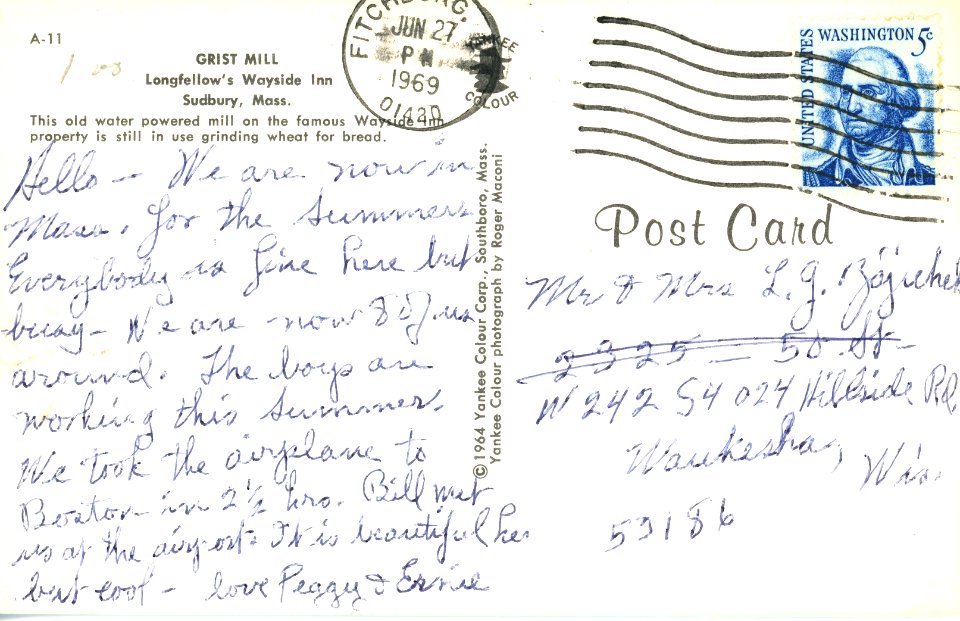 A-11
GRIST MILL
Longfellow's Wayside Inn
Sudbury, Mass.
This old water powered mill on the famous Wayside Inn
property is still in use grinding wheat for bread.
Hello — We are now in
Mass. for the summer.
Everybody is fine here but
busy - We are now 8 of us
around. The boys are
working this summer.
We took the airplane to
Boston in 2½ hrs. Bill met
us at the airport. It is beautiful here
but cool - love Peggy & Ernie
©1964 Yankee Colour Corp., Southboro, Mass.
Yankee Colour photograph by Roger Maconi
FITCHBURG,
JUN 27
PM
1969
0142
YANKEE
COLOUR
UNITED STATES
WASHINGTON 5c
Post Card
Mr & Mrs L. G.
2325 — 50 St -
W 242 S4 024 Hillside Rd.
Waukesha, Wis.
53186